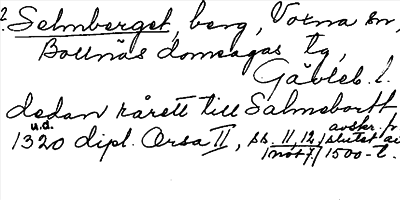 2. Selmberget, berg, Voxna sn,
Bollnäs domsagas tg,
Gävleb. l.
dedan rårett till Salmebortt
u.d.
1320 dipl. Orsa II, ss. 11, 12, avskr. fr.
slutet av
1500-t.